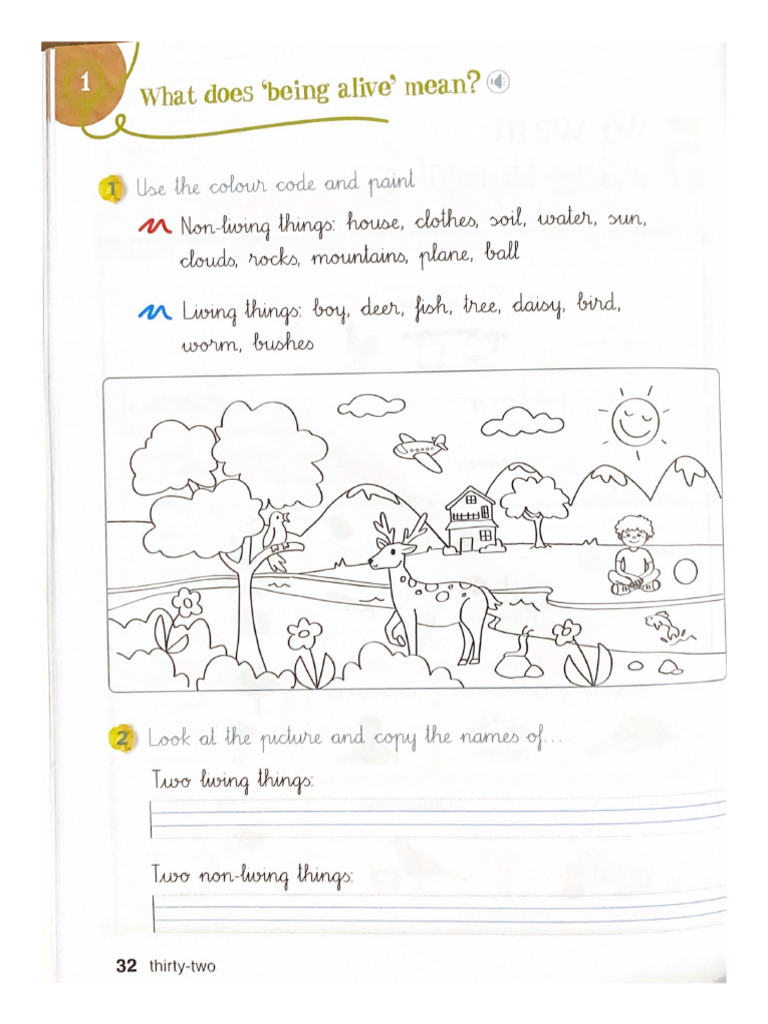 1
What does ‘being alive’ mean?
1 Use the colour code and paint
Non-living things: house, clothes, soil, water, sun,
clouds, rocks, mountains, plane, ball
Living things: boy, deer, fish, tree, daisy, bird,
worm, bushes
2 Look at the picture and copy the names of...
Two living things:
Two non-living things:
32 thirty-two